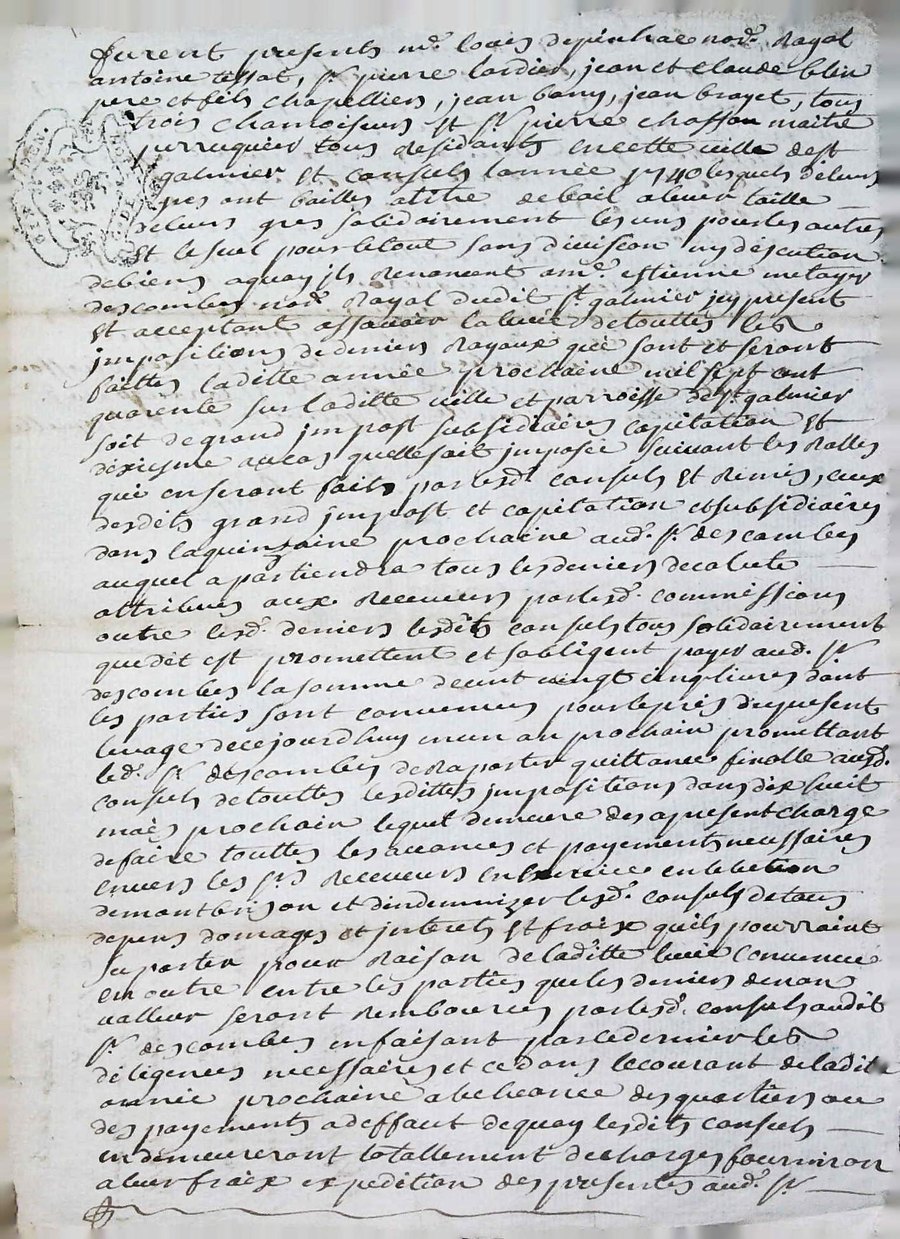 furent presents me. louis depinhac nore. Royal
antoine tissot, sr. pierre lardier, jean et claude blein
pere et fils chapelliers, jean bany, jean brayet, tous
trois chamoiseurs Et sr. pierre chassan maitre
perruquier tous Residants encette ville de st
galmier Et Consuls lannée 1740 lesquels deleurs
gres ont baillés atitre debail aleuer taille
deleurs gres solidairement les uns pourles autres
Et le seul pour letout sans division ny discution
debiens aquoy ils Renoncent a me. estienne metayer
descombes nore. Royal dudit st. galmier jcy present
Et acceptant assavoir la levée detouttes les
jmpositions dedeniers Royaux qui sont et seront
faittes laditte année prochaine mil sept cent
quarente sur laditte ville et parroisse de st. galmier
soit de grand jmpost subsidiaires capitation Et
dixiesme aucas quelle soit jmposée suivant les Rolles
qui enseront faits par lesd. consuls Et Remis, ceux
desdits grand jmpost et capitation et subsidiaires
dans laquinzaine prochaine aud. sr. descombes
auquel apartiendra tous lesdeniers decolute
attribues aux Receveurs par lesd. commissions
outre lesd. deniers lesdits consuls tous solidairement
que dit est promettent et sobligent payer aud. sr
descombes lasomme decent vingt cinq livres dont
les parties sont convenues pour leprix du present
levage decejourdhuy en un an prochain promettant
led. sr. descombes de Raporter quittance finalle ausd.
consuls detouttes lesdittes jmpositions dans dix huit
mois prochain lequel demeure des apresent charge
defaire touttes les avances et payements necessaires
envers les srs Receveurs en Exercice en lelection
demontbrison et dindemnizer lesd. consuls detous
depens domages et jnterets Et fraix quils pourroint
suporter pour Raison de laditte levée convenu
en outre entre les parties que les deniers denon
valleur seront Remboursés par lesd. consuls audit
sr. descombes enfaisant parcedernier les
diligences necessaires et cedans lecourant de ladite
année prochaine a lecheance des quartiers ou
des payements adeffaut dequoy lesdits consuls
en demeureront totallement decharges fourniron
aleur fraix expedition des presentes aud. sr